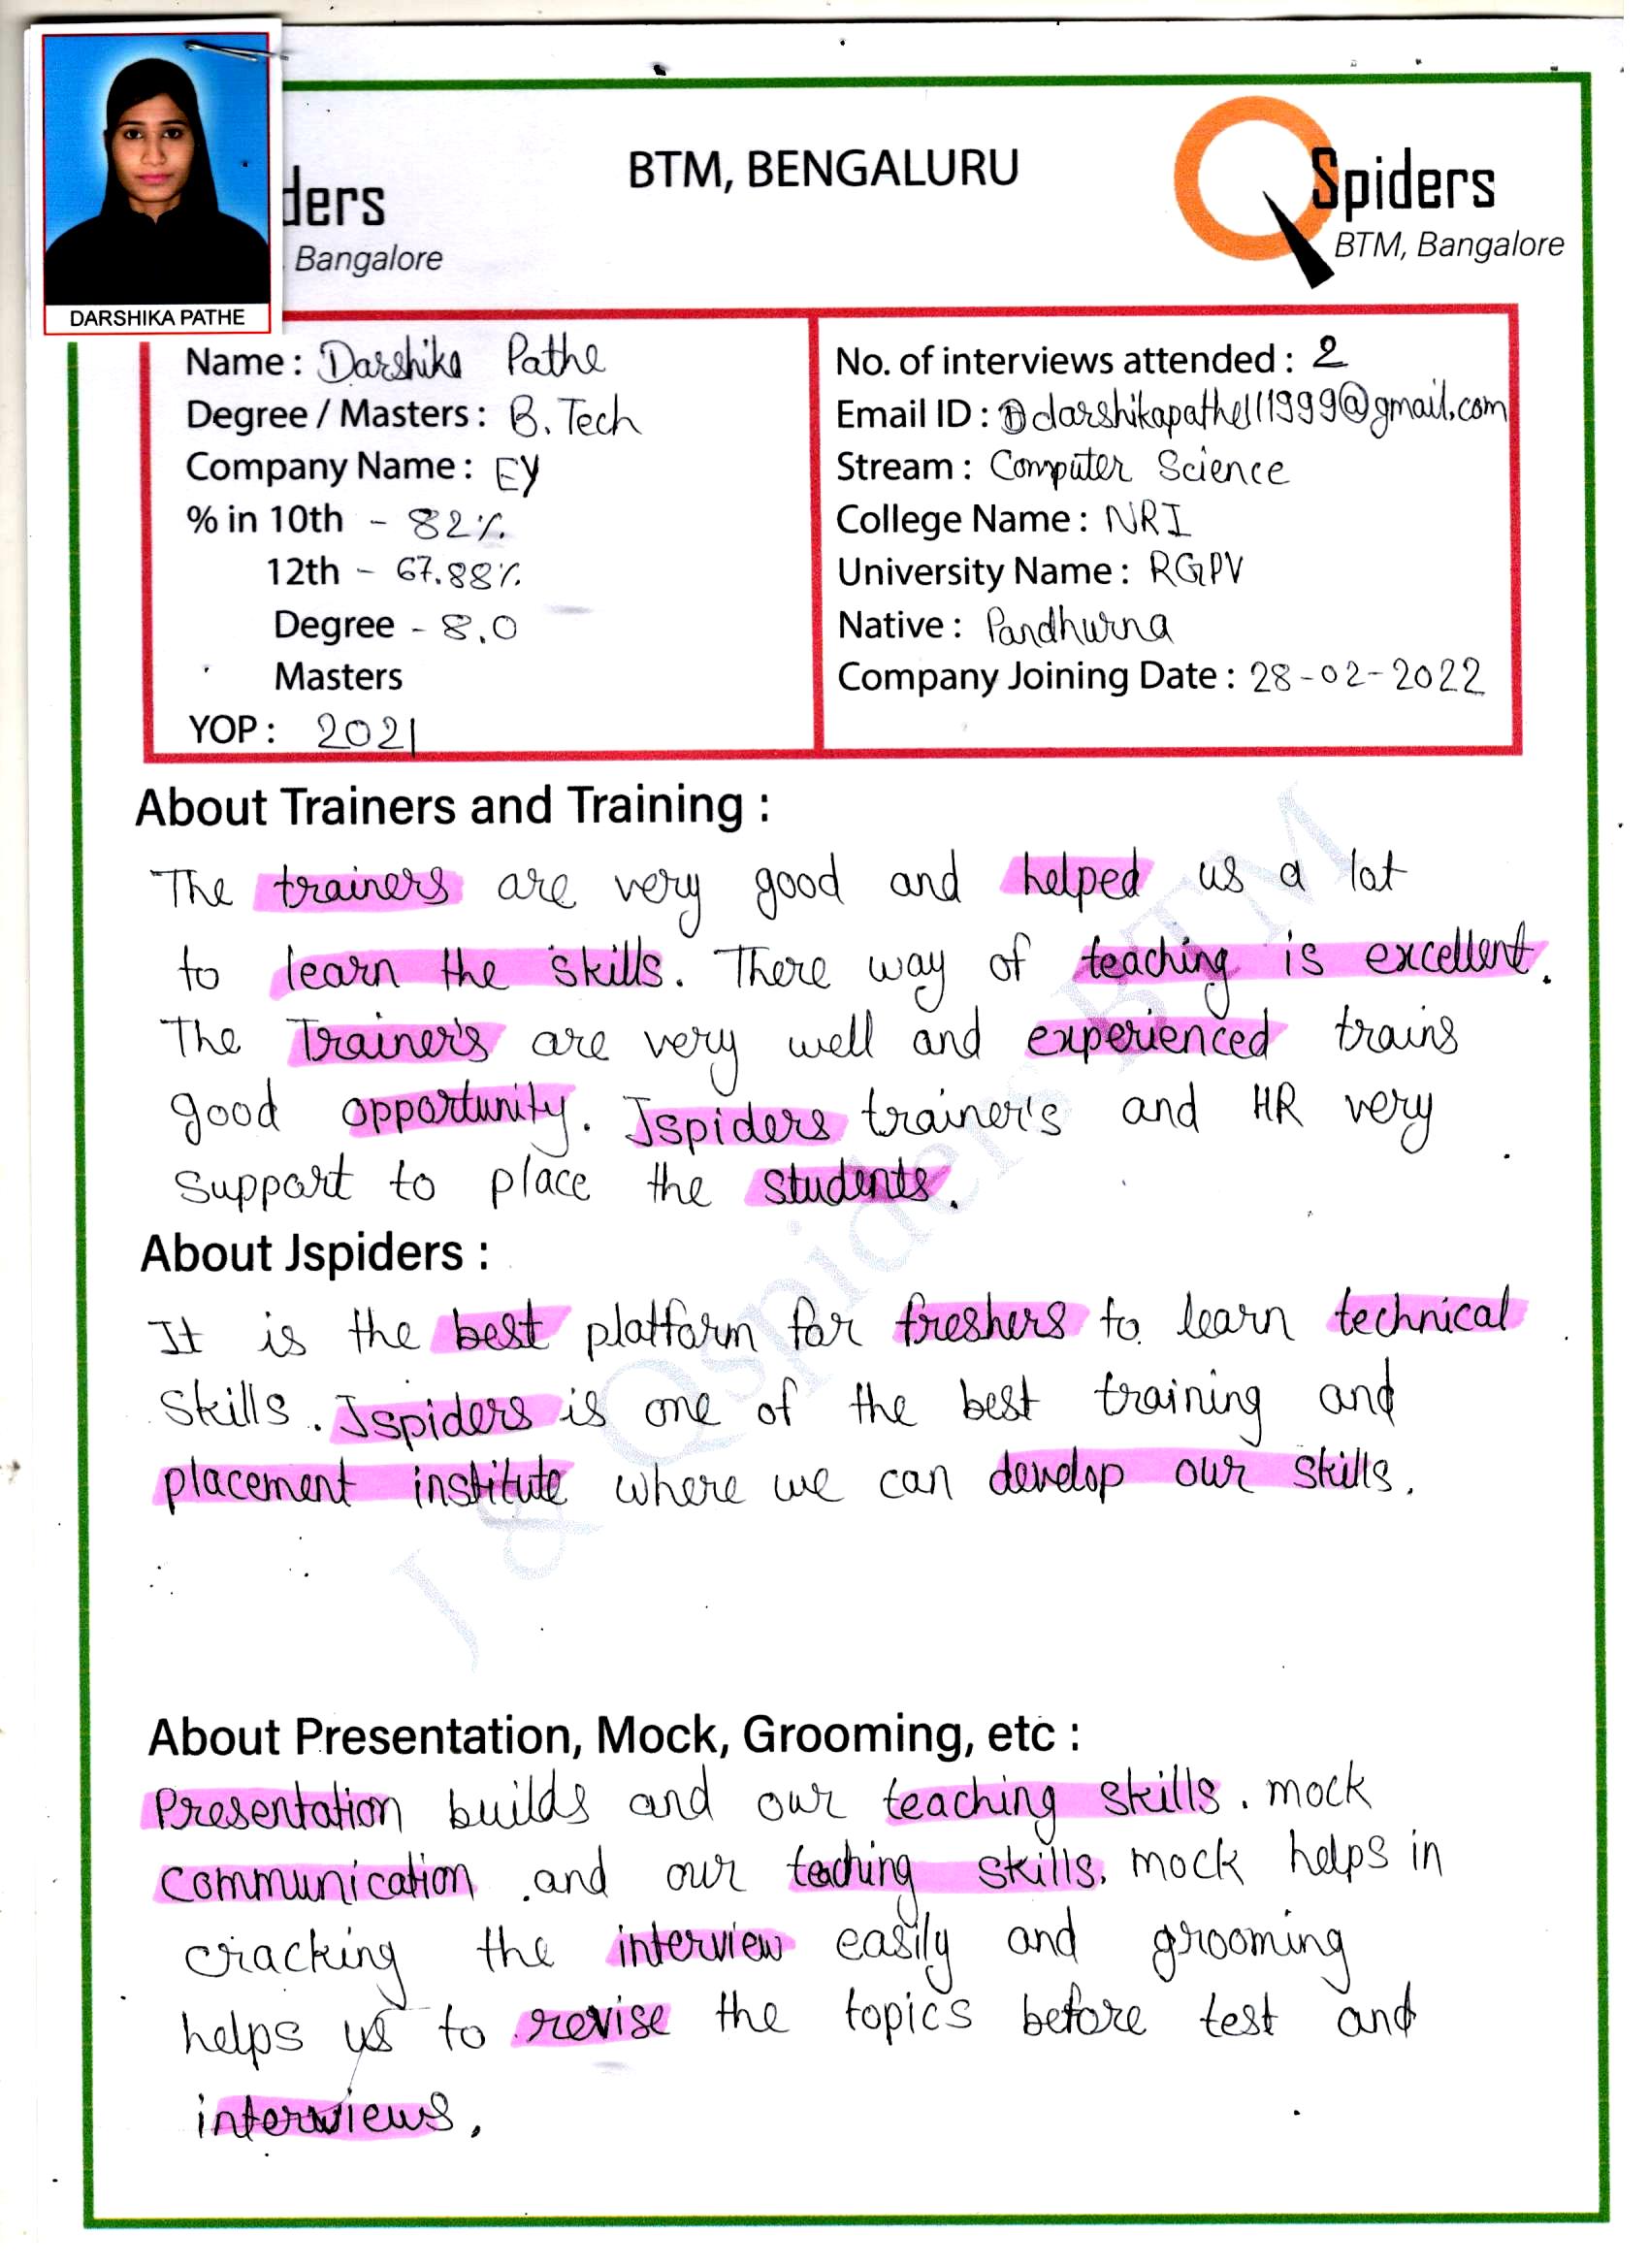 DARSHIKA PATHE
ders
Bangalore
BTM, BENGALURU
Spiders
BTM, Bangalore
Name : Darshika Pathe
Degree / Masters : B.Tech
Company Name : EY
% in 10th - 82%
12th - 67.88%
Degree - 8.0
Masters
YOP : 2021
No. of interviews attended : 2
Email ID : darshikapathe111999@gmail.com
Stream : Computer Science
College Name : NRI
University Name : RGPV
Native : Pandhurna
Company Joining Date : 28-02-2022
About Trainers and Training :
The trainers are very good and helped us a lot
to learn the skills. There way of teaching is excellent.
The Trainer's are very well and experienced trains
good opportunity. Jspiders trainer's and HR very
support to place the students.
About Jspiders :
It is the best platform for freshers to learn technical
skills. Jspiders is one of the best training and
placement institute where we can develop our skills.
About Presentation, Mock, Grooming, etc :
Presentation builds and our teaching skills. mock
communication and our teaching skills. mock helps in
cracking the interview easily and grooming
helps us to revise the topics before test and
interviews.
J & Qspiders BTM